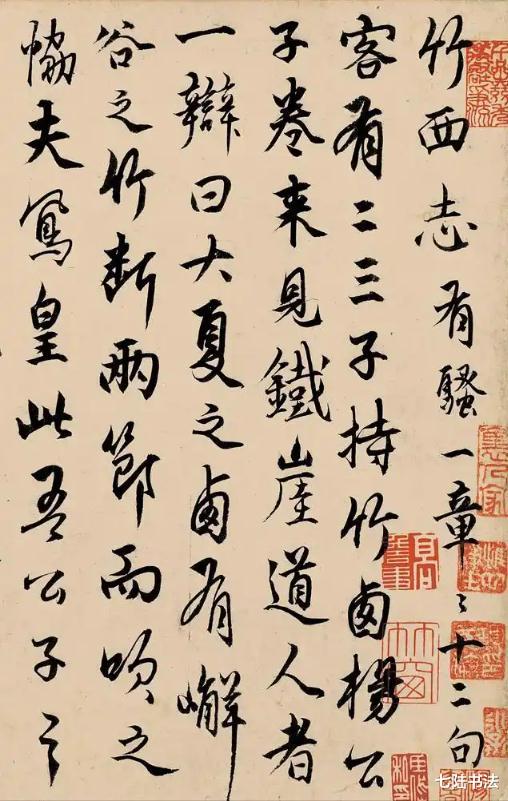 竹西志有騷一章〻十二句
客有二三子持竹卥楊公
子卷來見鐵崖道人者
一辯曰大夏之卥有嶰
谷之竹断兩節而吹之
恊夫鳳皇此吾公子之
七陆书法